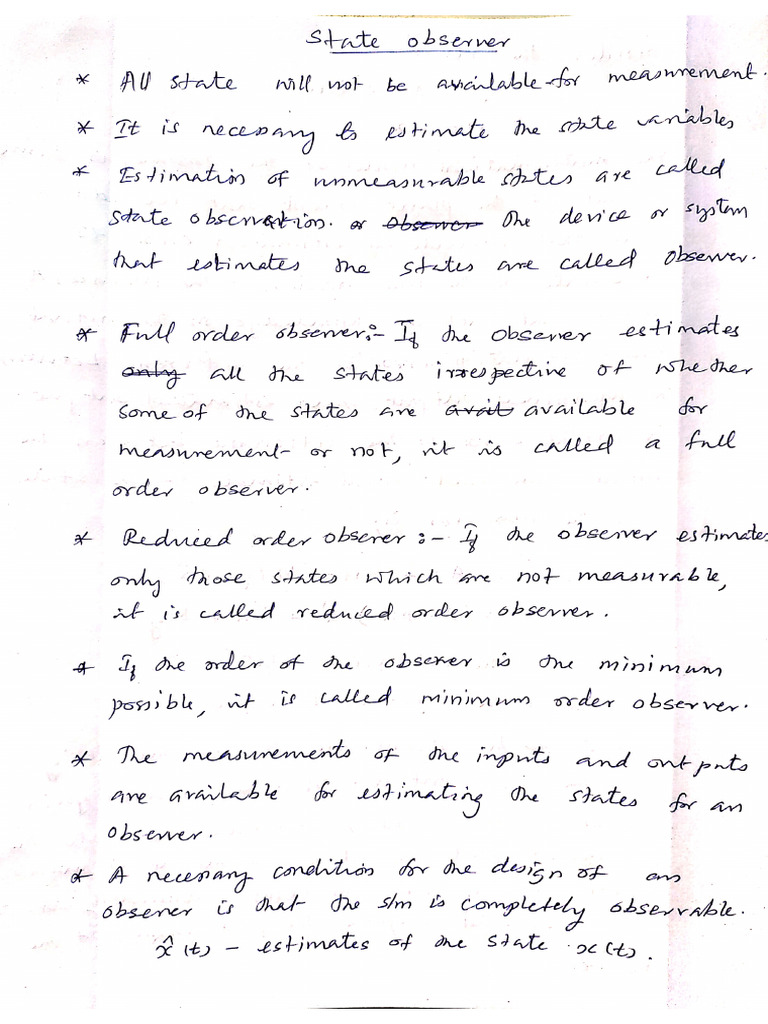 State observer
* All state will not be available for measurement.
* It is necessary to estimate the state variables
* Estimation of unmeasurable states are called
state observation. or Observer the device or system
that estimates the states are called Observer.
* Full order observer:- If the observer estimates
only all the states irrespective of whether
some of the states are avait available for
measurement or not, it is called a full
order observer.
* Reduced order obserer :- If the observer estimates
only those states which are not measurable,
it is called reduced order observer.
* If the order of the observer is the minimum
possible, it is called minimum order observer.
* The measurements of the inputs and outputs
are available for estimating the states for an
observer.
* A necessary condition for the design of an
observer is that the s/m is completely observable.
x̂(t) - estimates of the state x(t).